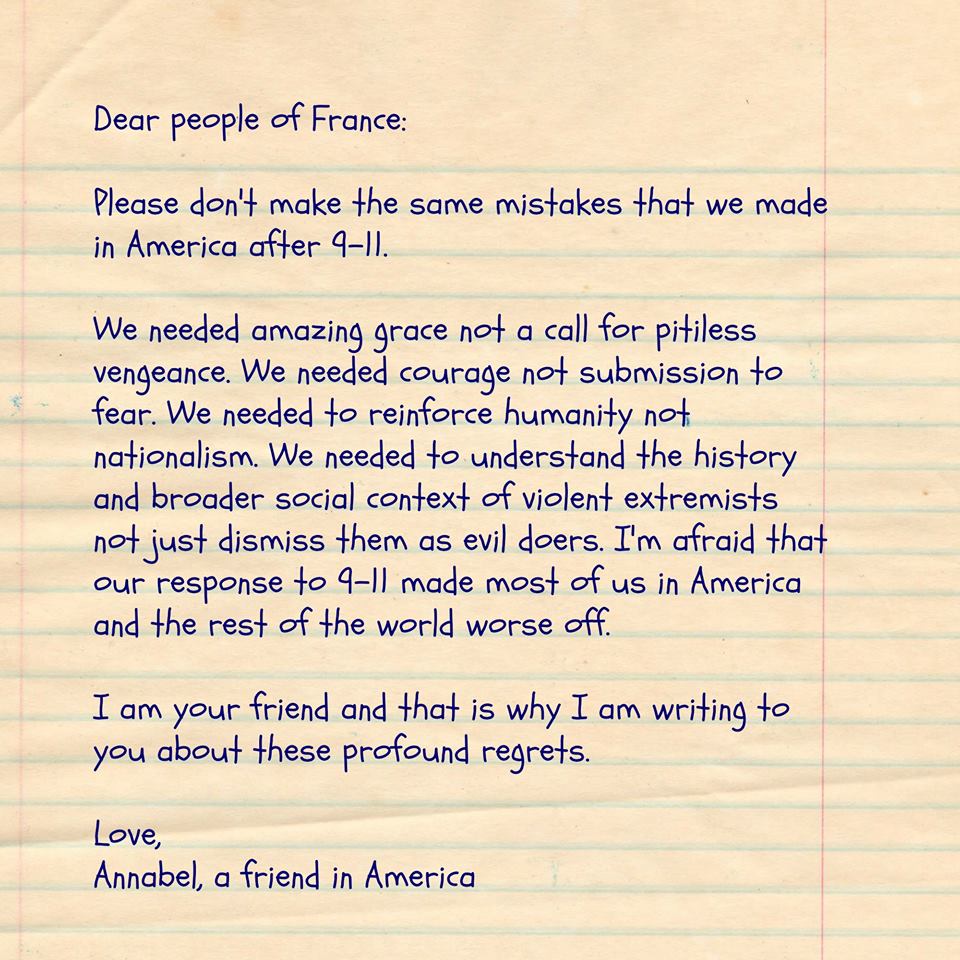 Dear people of France:
Please don't make the same mistakes that we made
in America after 9-11.
We needed amazing grace not a call for pitiless
vengeance. We needed courage not submission to
fear. We needed to reinforce humanity not
nationalism. We needed to understand the history
and broader social context of violent extremists
not just dismiss them as evil doers. I'm afraid that
our response to 9-11 made most of us in America
and the rest of the world worse off.
I am your friend and that is why I am writing to
you about these profound regrets.
Love,
Annabel, a friend in America